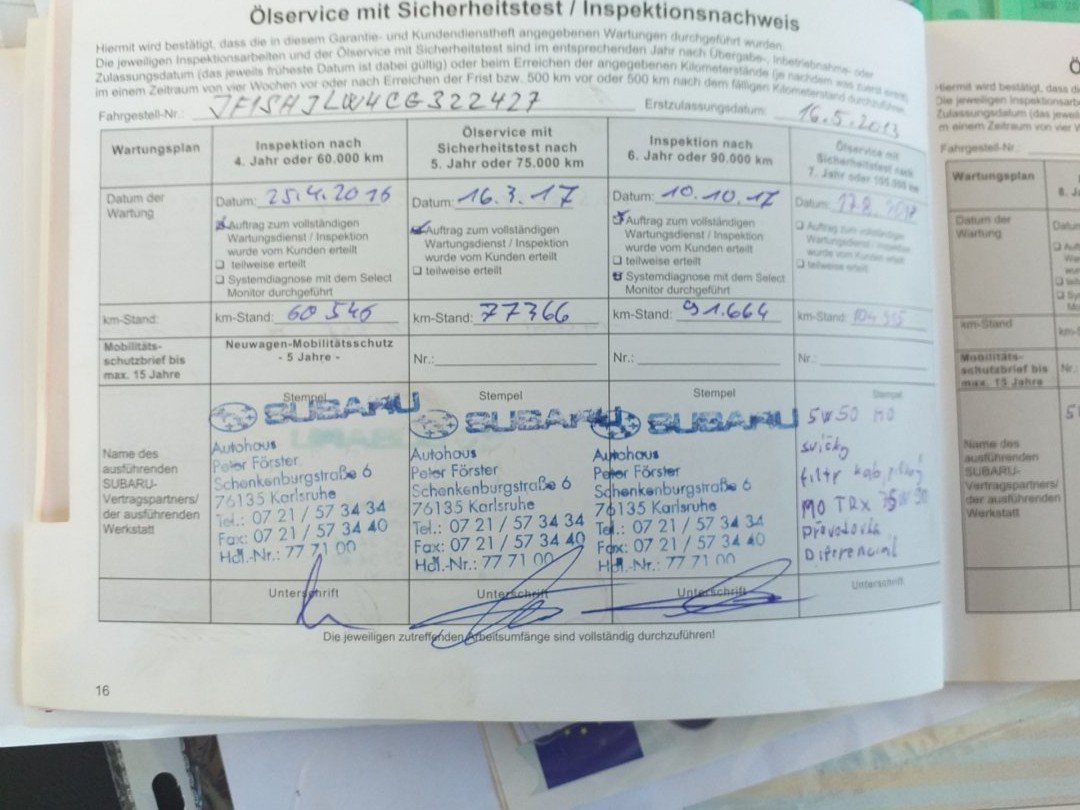 Ölservice mit Sicherheitstest / Inspektionsnachweis
Hiermit wird bestätigt, dass die in diesem Garantie- und Kundendienstheft angegebenen Wartungen durchgeführt wurden.
Die jeweiligen Inspektionsarbeiten und der Ölservice mit Sicherheitstest sind im entsprechenden Jahr nach Übergabe-, Inbetriebnahme- oder
Zulassungsdatum (das jeweils früheste Datum ist dabei gültig) oder beim Erreichen der angegebenen Kilometerstände (je nachdem was zuerst eintritt)
im einem Zeitraum von vier Wochen vor oder nach Erreichen der Frist bzw. 500 km vor oder 500 km nach dem fälligen Kilometerstand durchzuführen.
Fahrgestell-Nr.: JF1SHJLW4CG322427 Erstzulassungsdatum: 16.5.2013
Wartungsplan
Inspektion nach
4. Jahr oder 60.000 km
Ölservice mit
Sicherheitstest nach
5. Jahr oder 75.000 km
Inspektion nach
6. Jahr oder 90.000 km
Ölservice mit
Sicherheitstest nach
7. Jahr oder 105.000 km
Datum der
Wartung
Datum: 25.4.2016
Auftrag zum vollständigen
Wartungsdienst / Inspektion
wurde vom Kunden erteilt
teilweise erteilt
Systemdiagnose mit dem Select
Monitor durchgeführt
Datum: 16.3.17
Auftrag zum vollständigen
Wartungsdienst / Inspektion
wurde vom Kunden erteilt
teilweise erteilt
Datum: 10.10.17
Auftrag zum vollständigen
Wartungsdienst / Inspektion
wurde vom Kunden erteilt
teilweise erteilt
Systemdiagnose mit dem Select
Monitor durchgeführt
Datum:
Auftrag zum vollständigen
Wartungsdienst / Inspektion
wurde vom Kunden erteilt
teilweise erteilt
km-Stand:
km-Stand: 60 546
km-Stand: 77366
km-Stand: 91.664
km-Stand:
Mobilitäts-
schutzbrief bis
max. 15 Jahre
Neuwagen-Mobilitätsschutz
- 5 Jahre -
Nr.:
Nr.:
Nr.:
Name des
ausführenden
SUBARU-
Vertragspartners/
der ausführenden
Werkstatt
Stempel
SUBARU
Autohaus
Peter Förster
Schenkenburgstraße 6
76135 Karlsruhe
Tel.: 07 21 / 57 34 34
Fax: 07 21 / 57 34 40
Hdl.-Nr.: 77 71 00
Stempel
SUBARU
Autohaus
Peter Förster
Schenkenburgstraße 6
76135 Karlsruhe
Tel.: 07 21 / 57 34 34
Fax: 07 21 / 57 34 40
Hdl.-Nr.: 77 71 00
Stempel
SUBARU
Autohaus
Peter Förster
Schenkenburgstraße 6
76135 Karlsruhe
Tel.: 07 21 / 57 34 34
Fax: 07 21 / 57 34 40
Hdl.-Nr.: 77 71 00
Stempel
5W50 MO
svíčky
filtr kab,
MO TRX 75W90
Převodovka
Diferencial
Unterschrift
Unterschrift
Unterschrift
Unterschrift
Die jeweiligen zutreffenden Arbeitsumfänge sind vollständig durchzuführen!
16
Hiermit wird bestätigt, dass
Fahrgestell-Nr.:
Wartungsplan
Datum der
Wartung
km-Stand
Mobilitäts-
schutzbrief bis
max. 15 Jahre
Nr.:
Name des
ausführenden
SUBARU-
Vertragspartners/
der ausführenden
Werkstatt